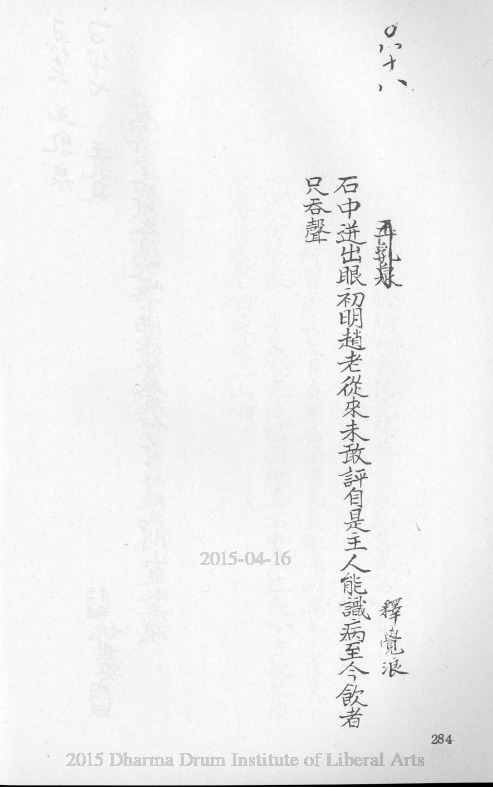 〇八十八
玉乳泉
釋覺浪
石中迸出眼初明趙老從來未敢評自是主人能識病至今飲者
只吞聲
2015-04-16
284
2015 Dharma Drum Institute of Liberal Arts